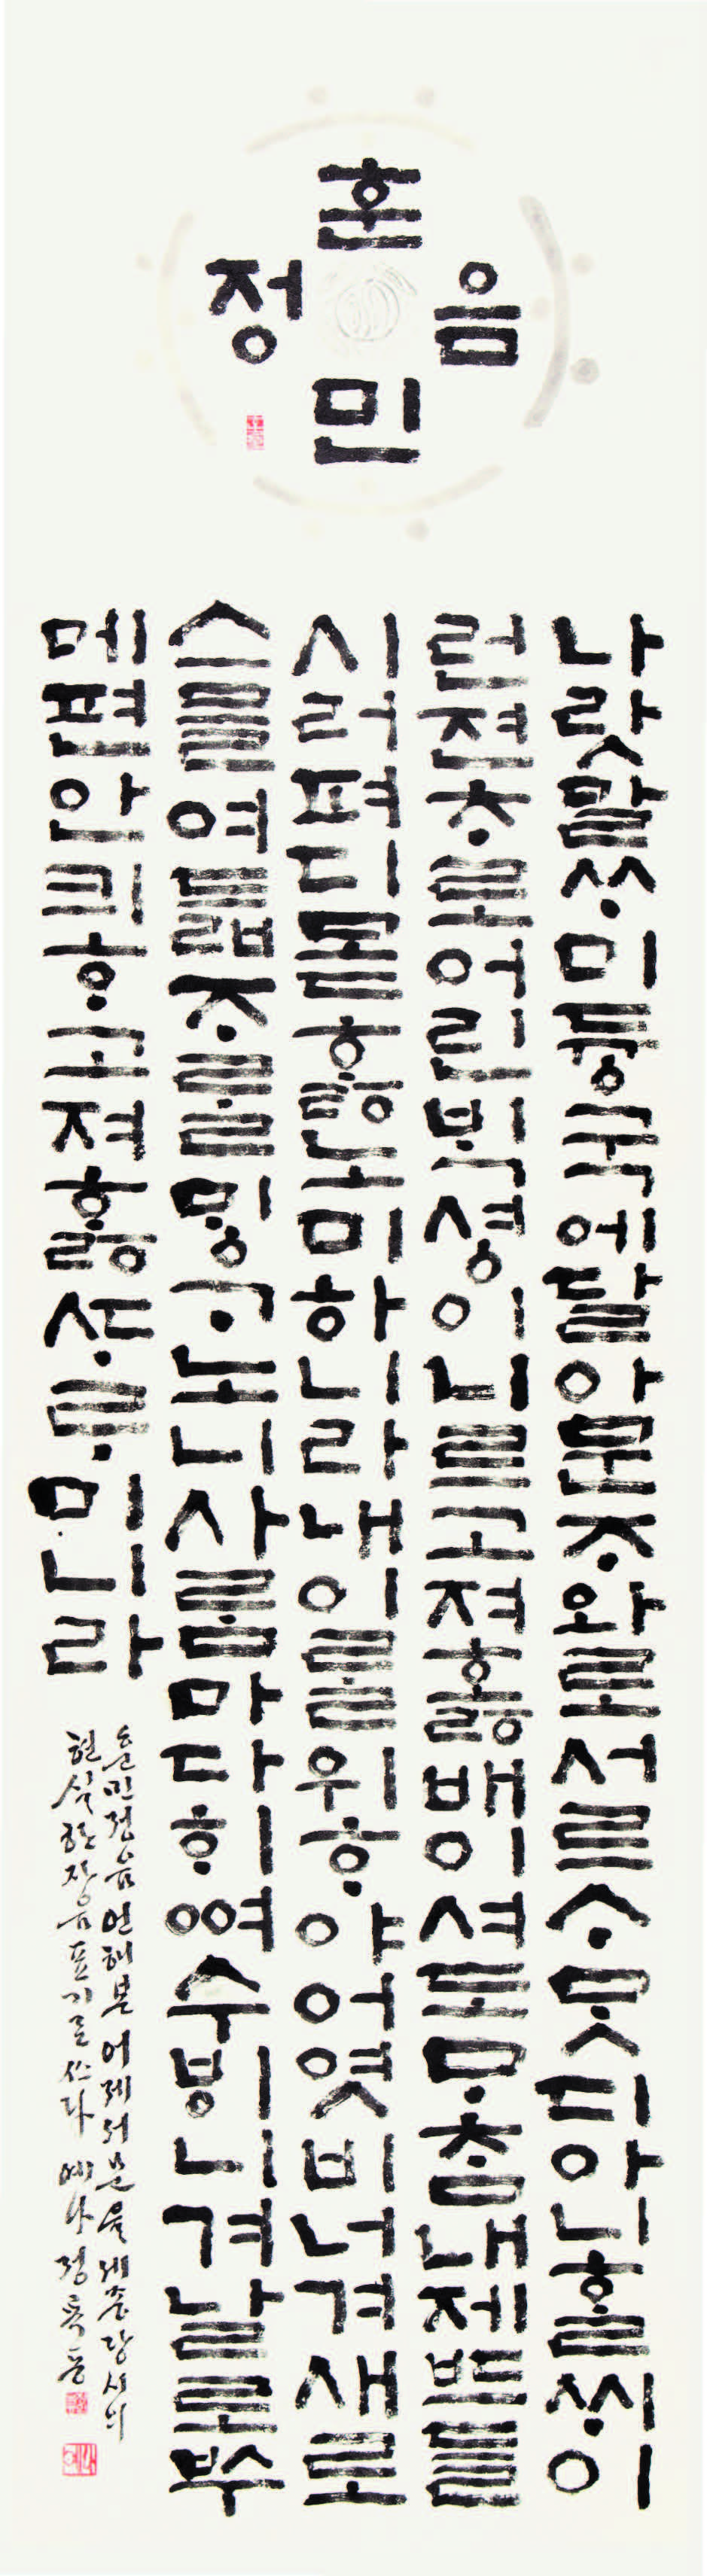 훈민정음
나랏말ᄊᆞ미듕국에달아문ᄌᆞ와로서르ᄉᆞᄆᆞᆺ디아니ᄒᆞᆯᄊᆡ이
런젼ᄎᆞ로어린ᄇᆡᆨ셩이니르고져호ᇙ배이셔도ᄆᆞᄎᆞᆷ내제ᄠᅳ들
시러펴디몯ᄒᆞᇙ노미하니라내이ᄅᆞᆯ위ᄒᆞ야어엿비너겨새로
스믈여듧ᄌᆞᄅᆞᆯᄆᆡᇰᄀᆞ노니사ᄅᆞᆷ마다ᄒᆡᅇᅧ수ᄫᅵ니겨날로ᄡᅮ
메편안킈ᄒᆞ고져ᄒᆞᇙᄯᆞᄅᆞ미니라
훈민정음 언해본 어제서문을 세종당시의
현실한자음표기로쓰다 예사 정복동